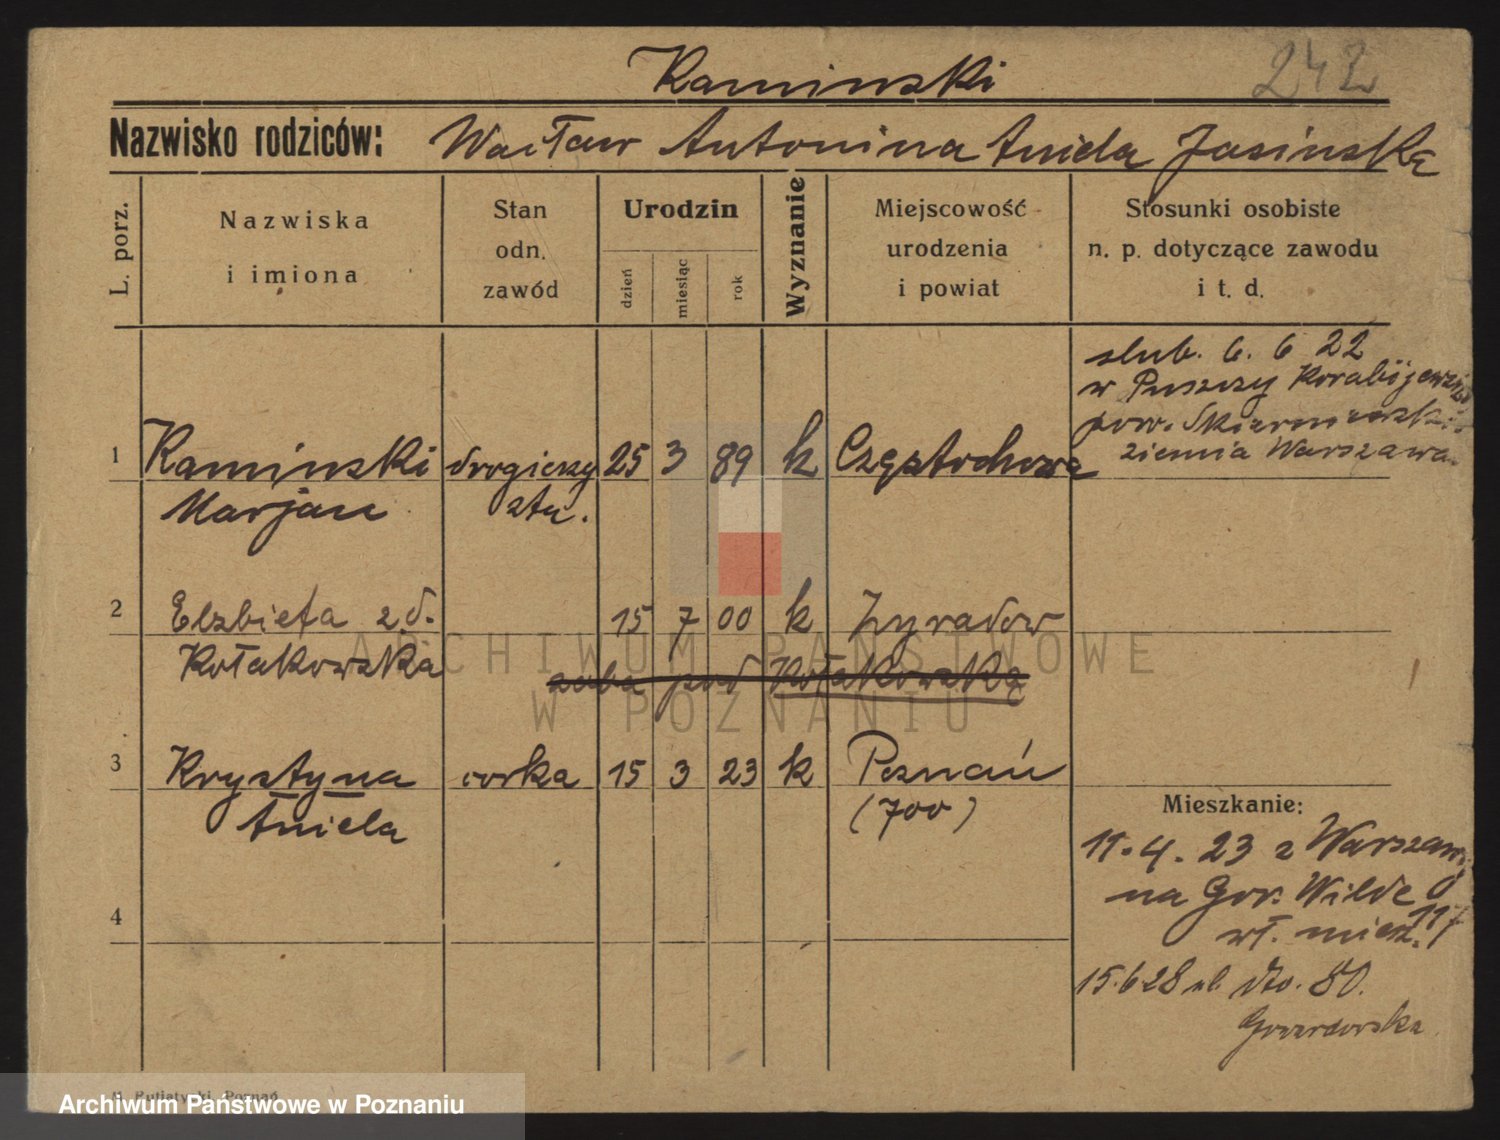 Kaminski 242
Nazwisko rodziców: Wacław Antonina Aniela Jasinska
L. porz.
Nazwiska
i imiona
Stan
odn.
zawód
Urodzin
dzień
miesiąc
rok
Wyznanie
Miejscowość
urodzenia
i powiat
Stosunki osobiste
n. p. dotyczące zawodu
i t. d.
slub. 6. 6 22
w Puszczy Korabijewskiej
pow. Skierniewski
ziemia Warszawa
1 Kaminski drogierzy 25 3 89 k Częstochowa
Marjan stu.
2 Elzbieta z d. 15 7 00 k Zyradow
Kołakowska
pod Kołakowską
3 Krystyna corka 15 3 23 k Poznań
Aniela (700)
4
Mieszkanie:
11. 4. 23 z Warszawy
na Gor. Wilde 117
wł. miesz.
15.6 28 ul. dto. 80.
M. Putiatycki, Poznań
ARCHIWUM PAŃSTWOWE
W POZNANIU
Archiwum Państwowe w Poznaniu